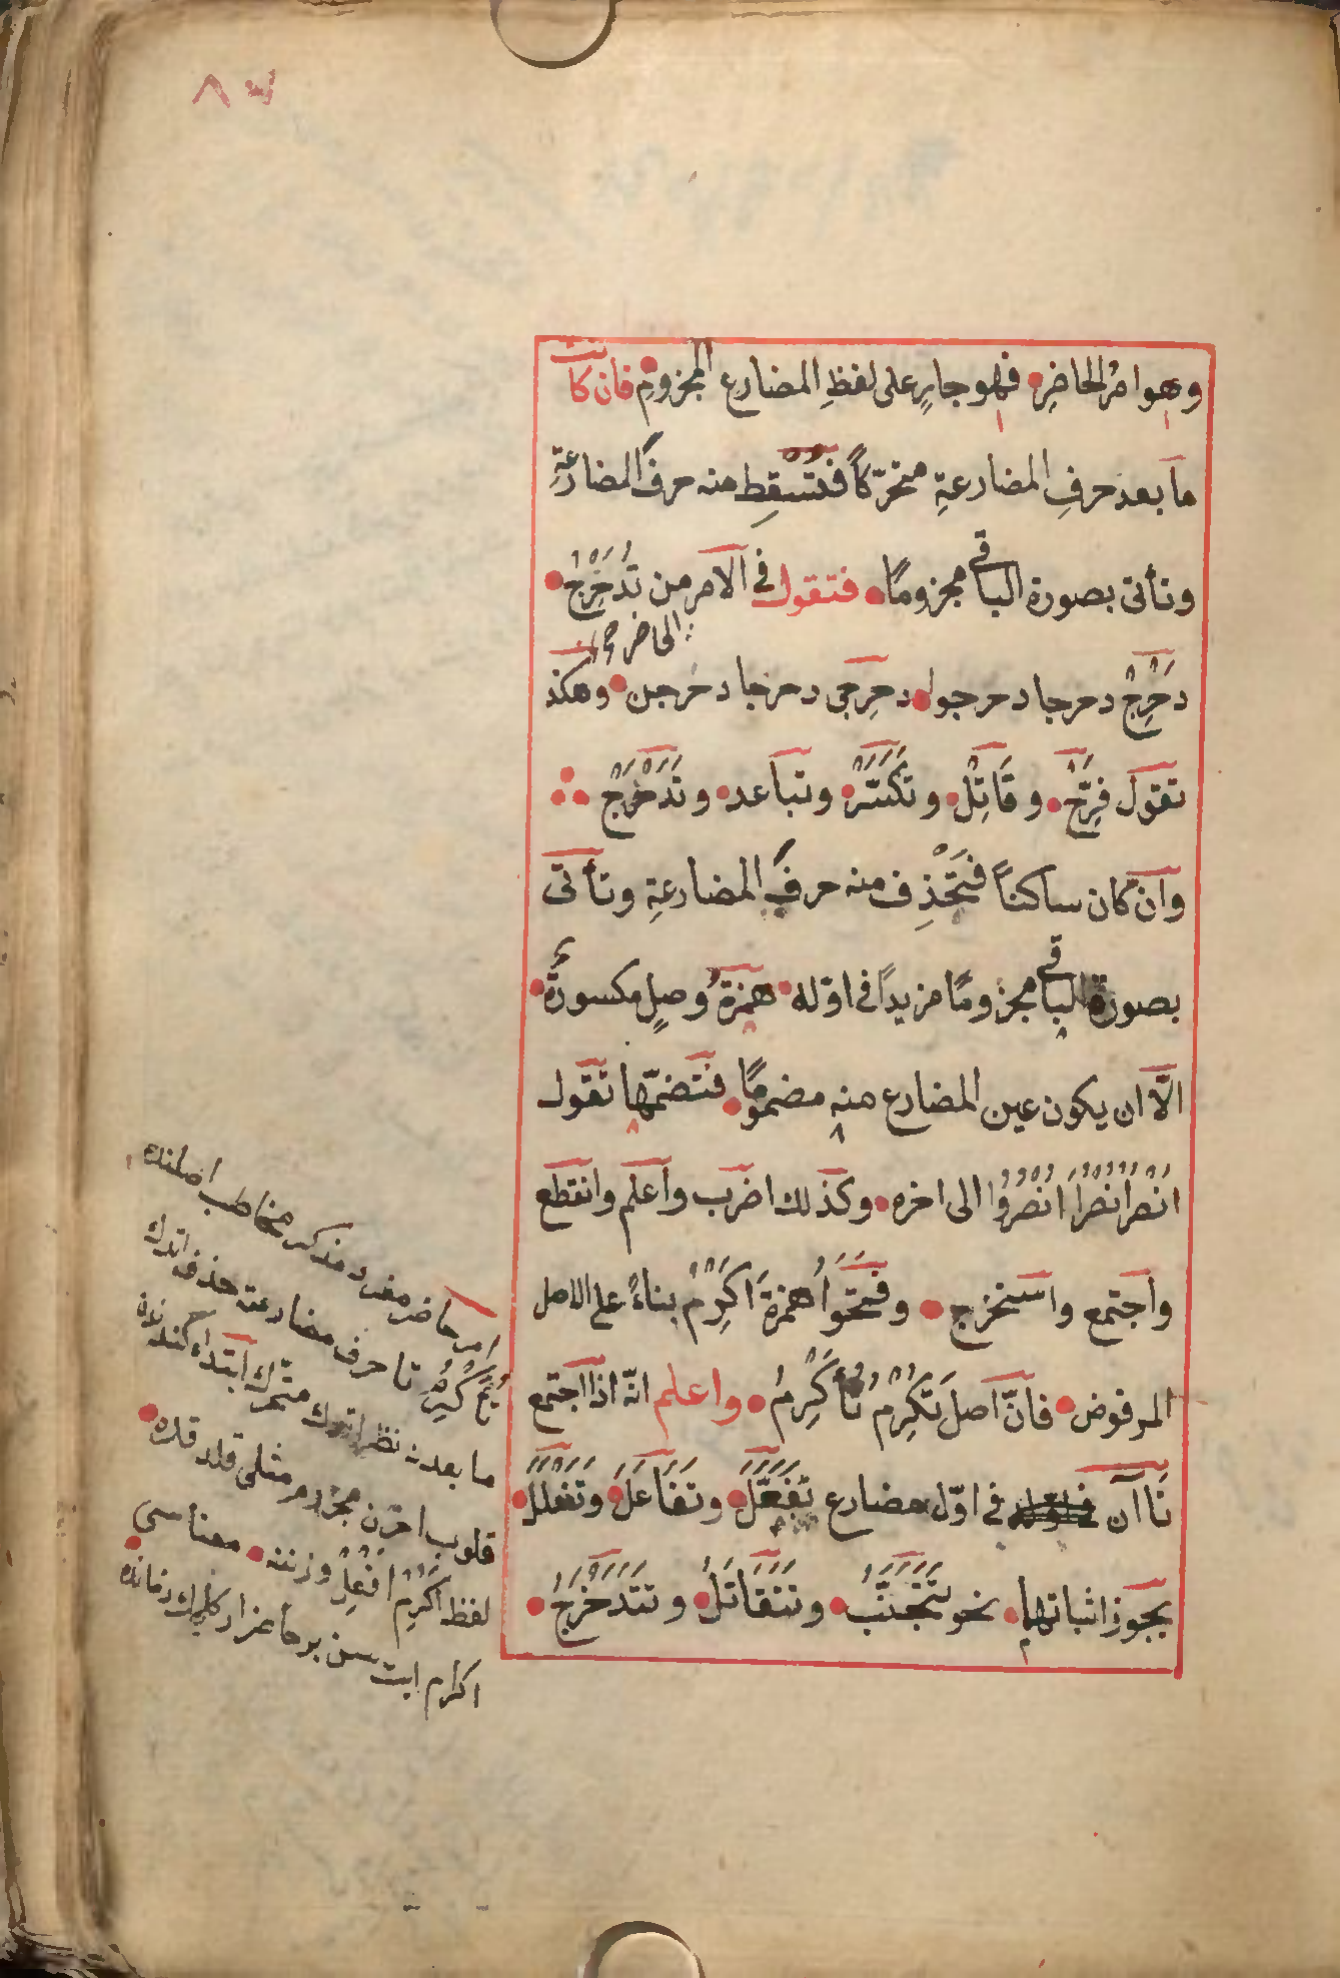 وهو امر الحاضر فهو جار على لفظ المضارع المجزوم فان كانت
ما بعد حرف المضارعة متحرّكاً فتسقط منه حرف المضارعة
وتأتى بصورة الباقى مجزومًا فتقول فى الامر من تُدَحْرِجُ
الحاضر
دَحْرِجْ دحرجا دحرجوا دحرجى دحرجا دحرجن وهكذ
تقول فَرِّحْ وقَاتِلْ وتَكَسَّرْ وتباعد وتَدَحْرَجْ
وان كان ساكناً فتَحْذِف منه حرف المضارعة وتأتى
بصورة الباقى مجزومًا مزيداً فى اوّله همزةُ وصلٍ مكسورةً
الّا ان يكون عين المضارع منه مضمومًا فتضمّها تقول
انْصُرْ انْصُرَا انْصُرُوا الى اخره وكذلك اضرب واعلم وانقطع
واجتمع واستخرج وفتحوا همزةَ اَكْرِمْ بناءً على الاصل
المرفوض فانّ اصل تُكْرِمُ تُأَكْرِمُ واعلم انّه اذا اجتمع
تَاآن فى اوّل مضارع تَفَعَّلَ وتَفَاعَلَ وتَفَعْلَلَ
يجوز اثباتهما نحو تَتَجَنَّبُ وتَتَقَاتَلُ وتَتَدَحْرَجُ
امر حاضر مفرد مذكر مخاطب اصلنده
تا حرف مضارعة حذف اتدك
ما بعدنه نظر اتدك متحرك ابتداء
قلوب اخرن مجزوم مثلى قلدق
لفظ اَكْرِمْ اَفْعِلْ وزننه معناسى
اكرام ايت سن بر حاضر ار كلجك زمانده